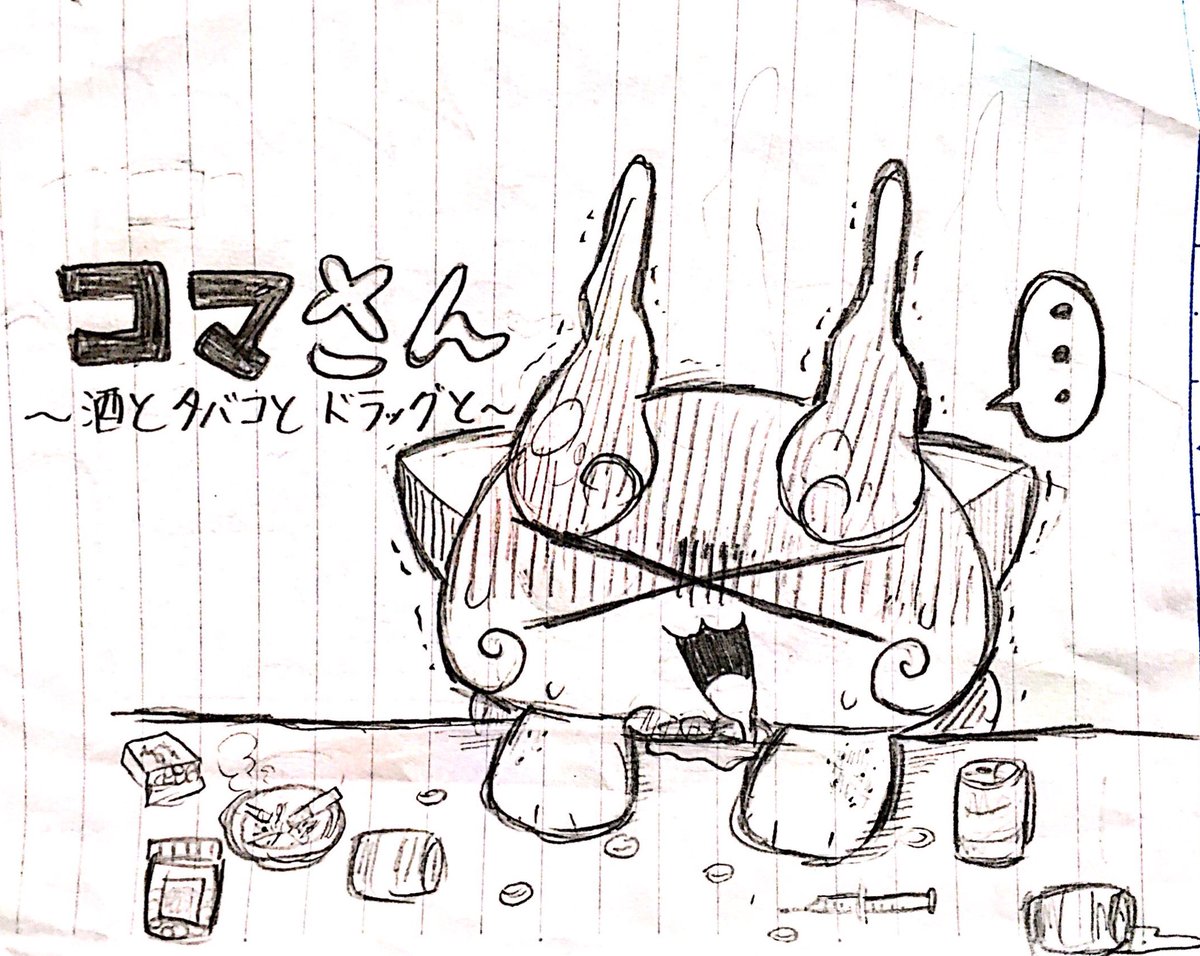 コマさん
～酒とタバコとドラッグと～